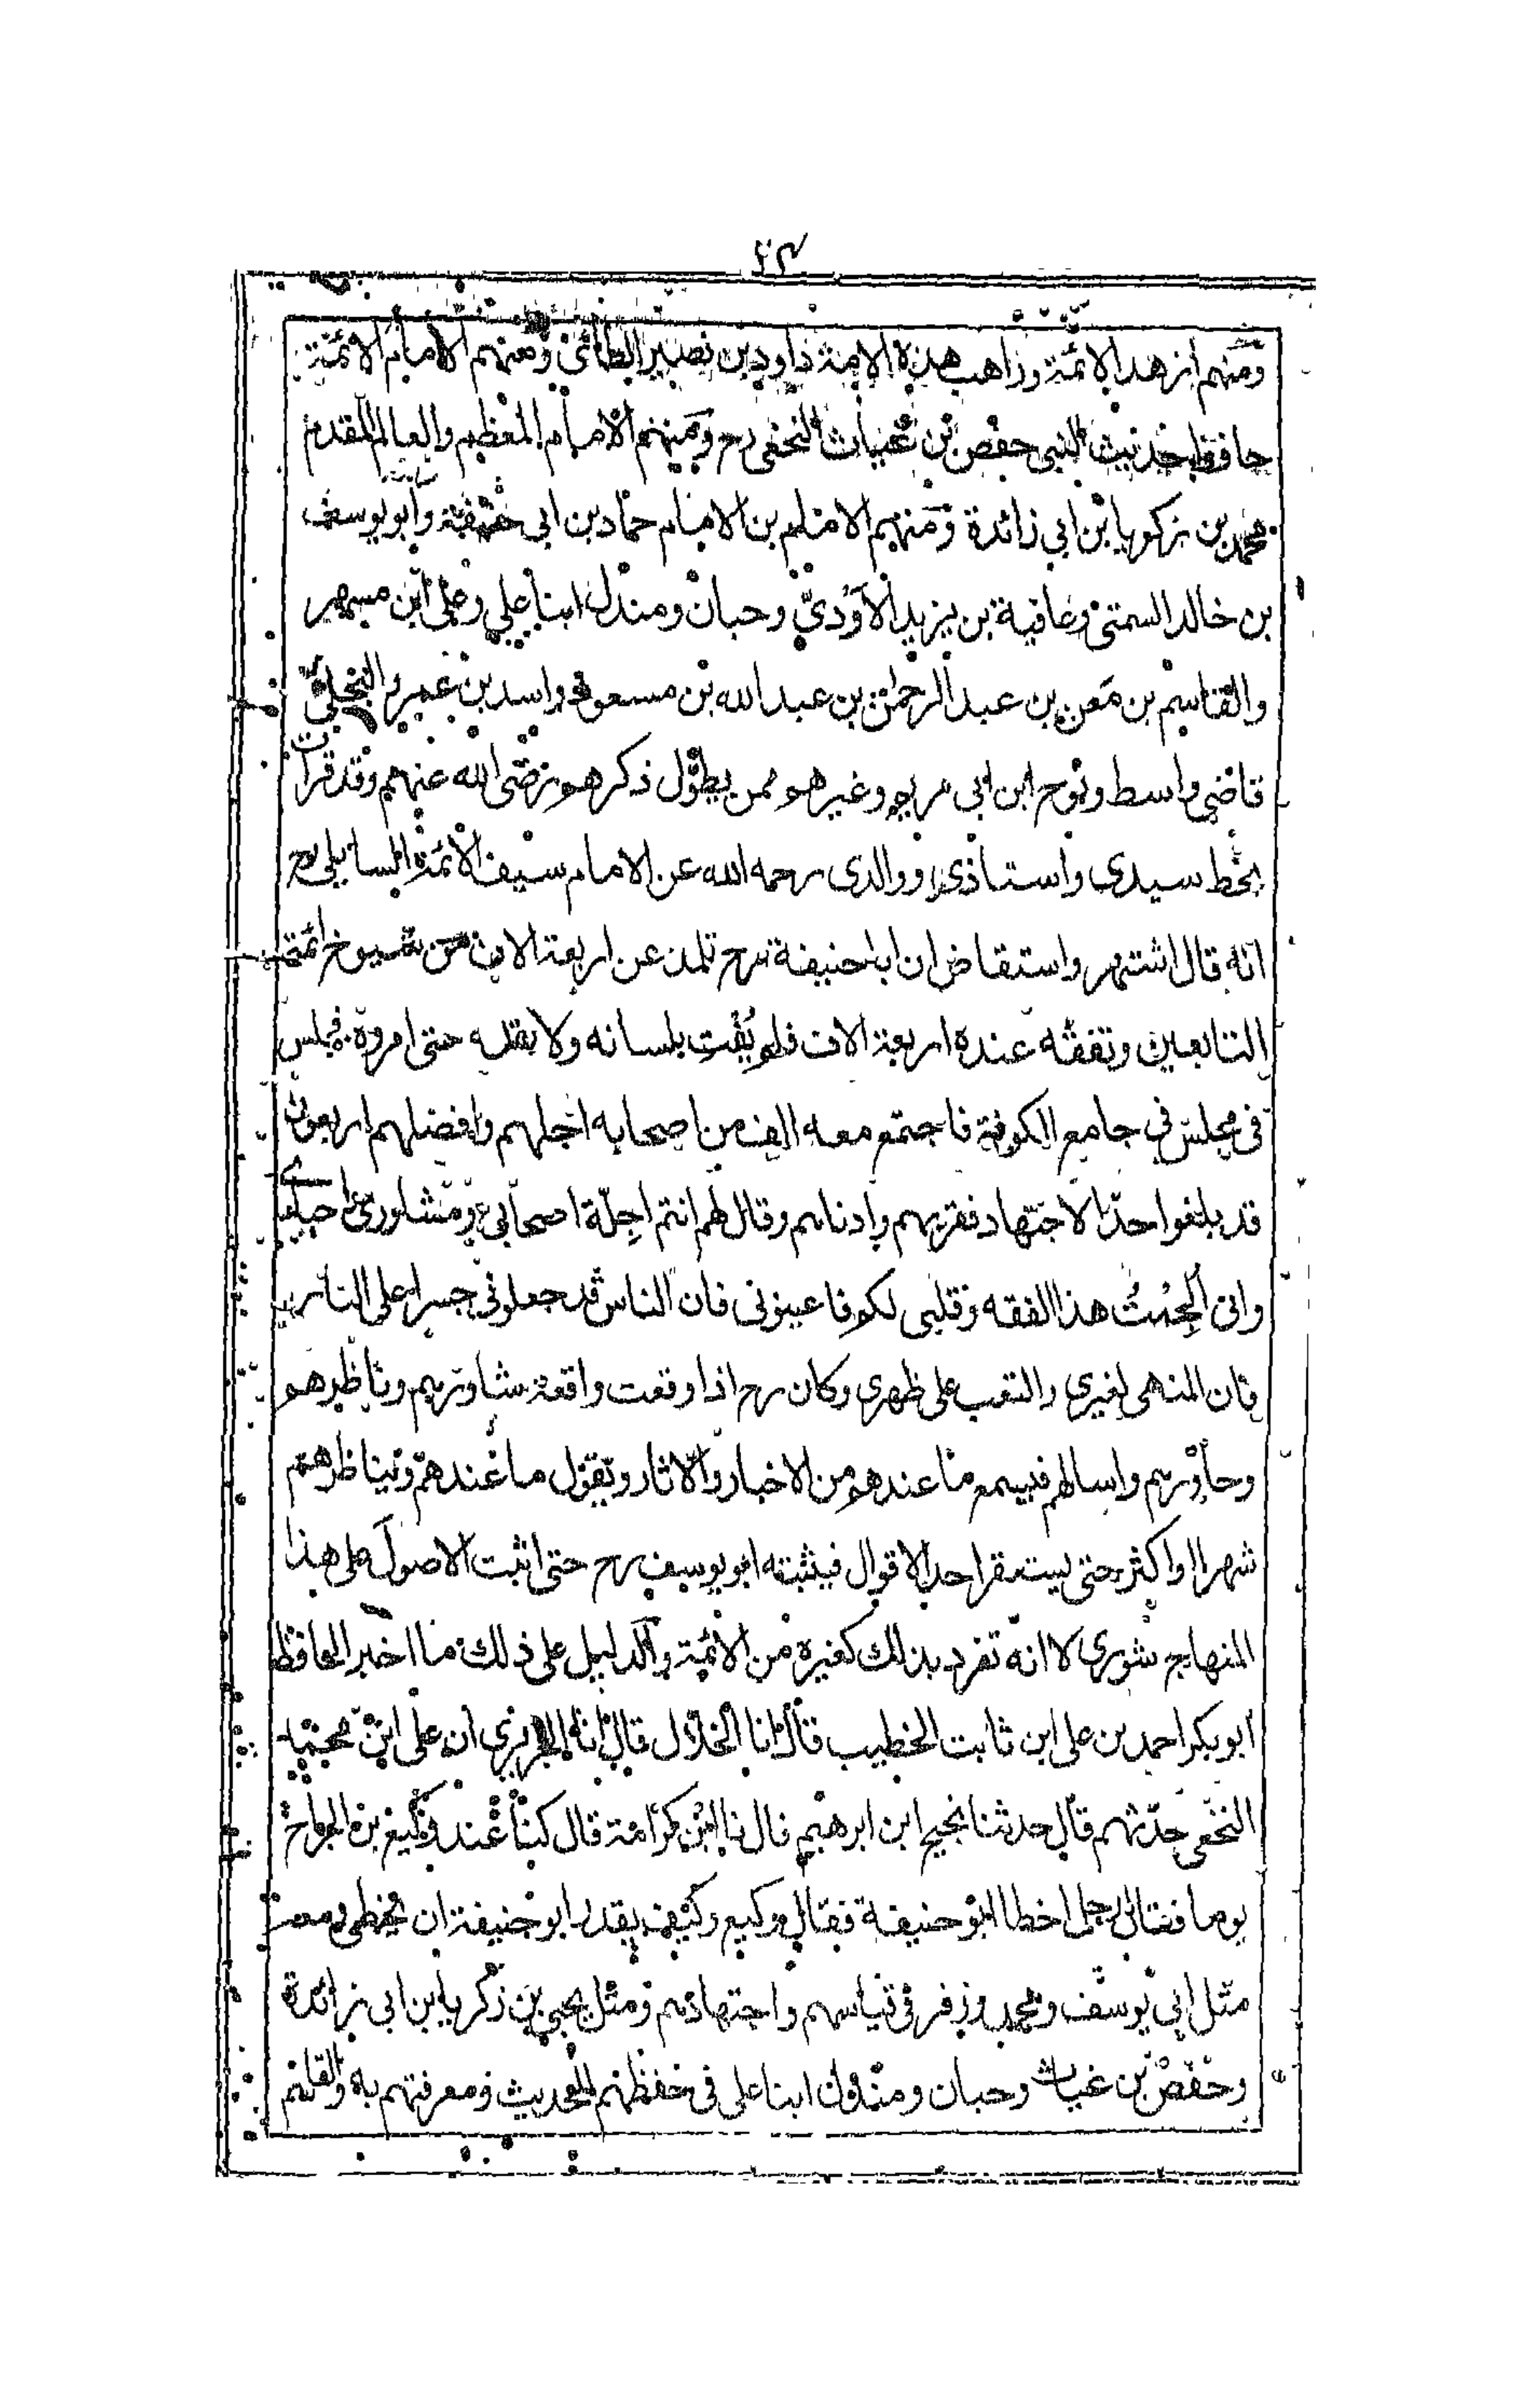 ٢٣
ومنهم ازهد الائمة وزاهب هذه الامة داود بن نصير الطائى ومنهم الامام الائمة
حافظ حديث النبى حفص بن غياث النخعى رح ومنهم الامام المعظم والعالم المقدم
محمد بن زكريا بن ابي زائدة ومنهم الامام بن الامام حماد بن ابي حنيفة وابو يوسف
بن خالد السمتى وعافية بن يزيد الاودىّ وحبان ومندل ابنا علي وعلى ابن مسهر
والقاسم بن معن بن عبد الرحمن بن عبد الله بن مسعود واسد بن عمرو البجلىّ
قاضى واسط ونوح ابن ابى مريم وغيرهم ممن يطوّل ذكرهم رضى الله عنهم وقد قرات
بخط سيدى واستاذى ووالدى رحمه الله عن الامام سيف الائمة السايلى رح
انه قال اشتهر واستفاض ان ابا حنيفة رح تلمذ عن اربعة الاف من شيوخ ائمة
التابعين وتفقّه عنده اربعة الاف فلم يُفْتِ بلسانه ولا بقلمه حتى امروه فجلس
فى مجلس في جامع الكوفة فاجتمع معه الف من اصحابه اجلهم وافضلهم اربعون
قد بلغوا حدّ الاجتهاد فقربهم وادناهم وقال لهم انتم اجِلّة اصحابى ومشاورى
وانى الجمتُ هذا الفقه وقلبى لكم فاعينونى فان الناس قد جعلونى جسرا على النار
فان المنهى لغيرى والتعب على ظهرى وكان رح اذا وقعت واقعة شاورهم وناظرهم
وحاورهم واسالهم فيسمع ما عندهم من الاخبار والاثار ويقول ما عندهم ويناظرهم
شهرا او اكثر حتى يستقر احد الاقوال فيثبته ابو يوسف رح حتى اثبت الاصول على هذا
المنهاج شورى لا انّه تفرد بذلك كغيره من الائمة والدليل على ذلك ما اخبر الحافظ
ابو بكر احمد بن على ابن ثابت الخطيب قال انا الخلال قال انه الجريرى ان على ابن محمد
النخعى حدّثهم قال حدثنا نجيح ابن ابرهيم قال نا ابن كرامة قال كنا عند وكيع بن الجراح
يوما فقال رجل اخطا ابو حنيفة فقال وكيع وكيف يقدر ابو حنيفة ان يخطى ومعه
مثل ابى يوسف ومحمد وزفر فى قياسهم واجتهادهم ومثل يحيى بن زكريا ابن ابى زائدة
وحفص بن غياث وحبان ومندل ابنا على فى حفظهم للحديث ومعرفتهم به والقاسم